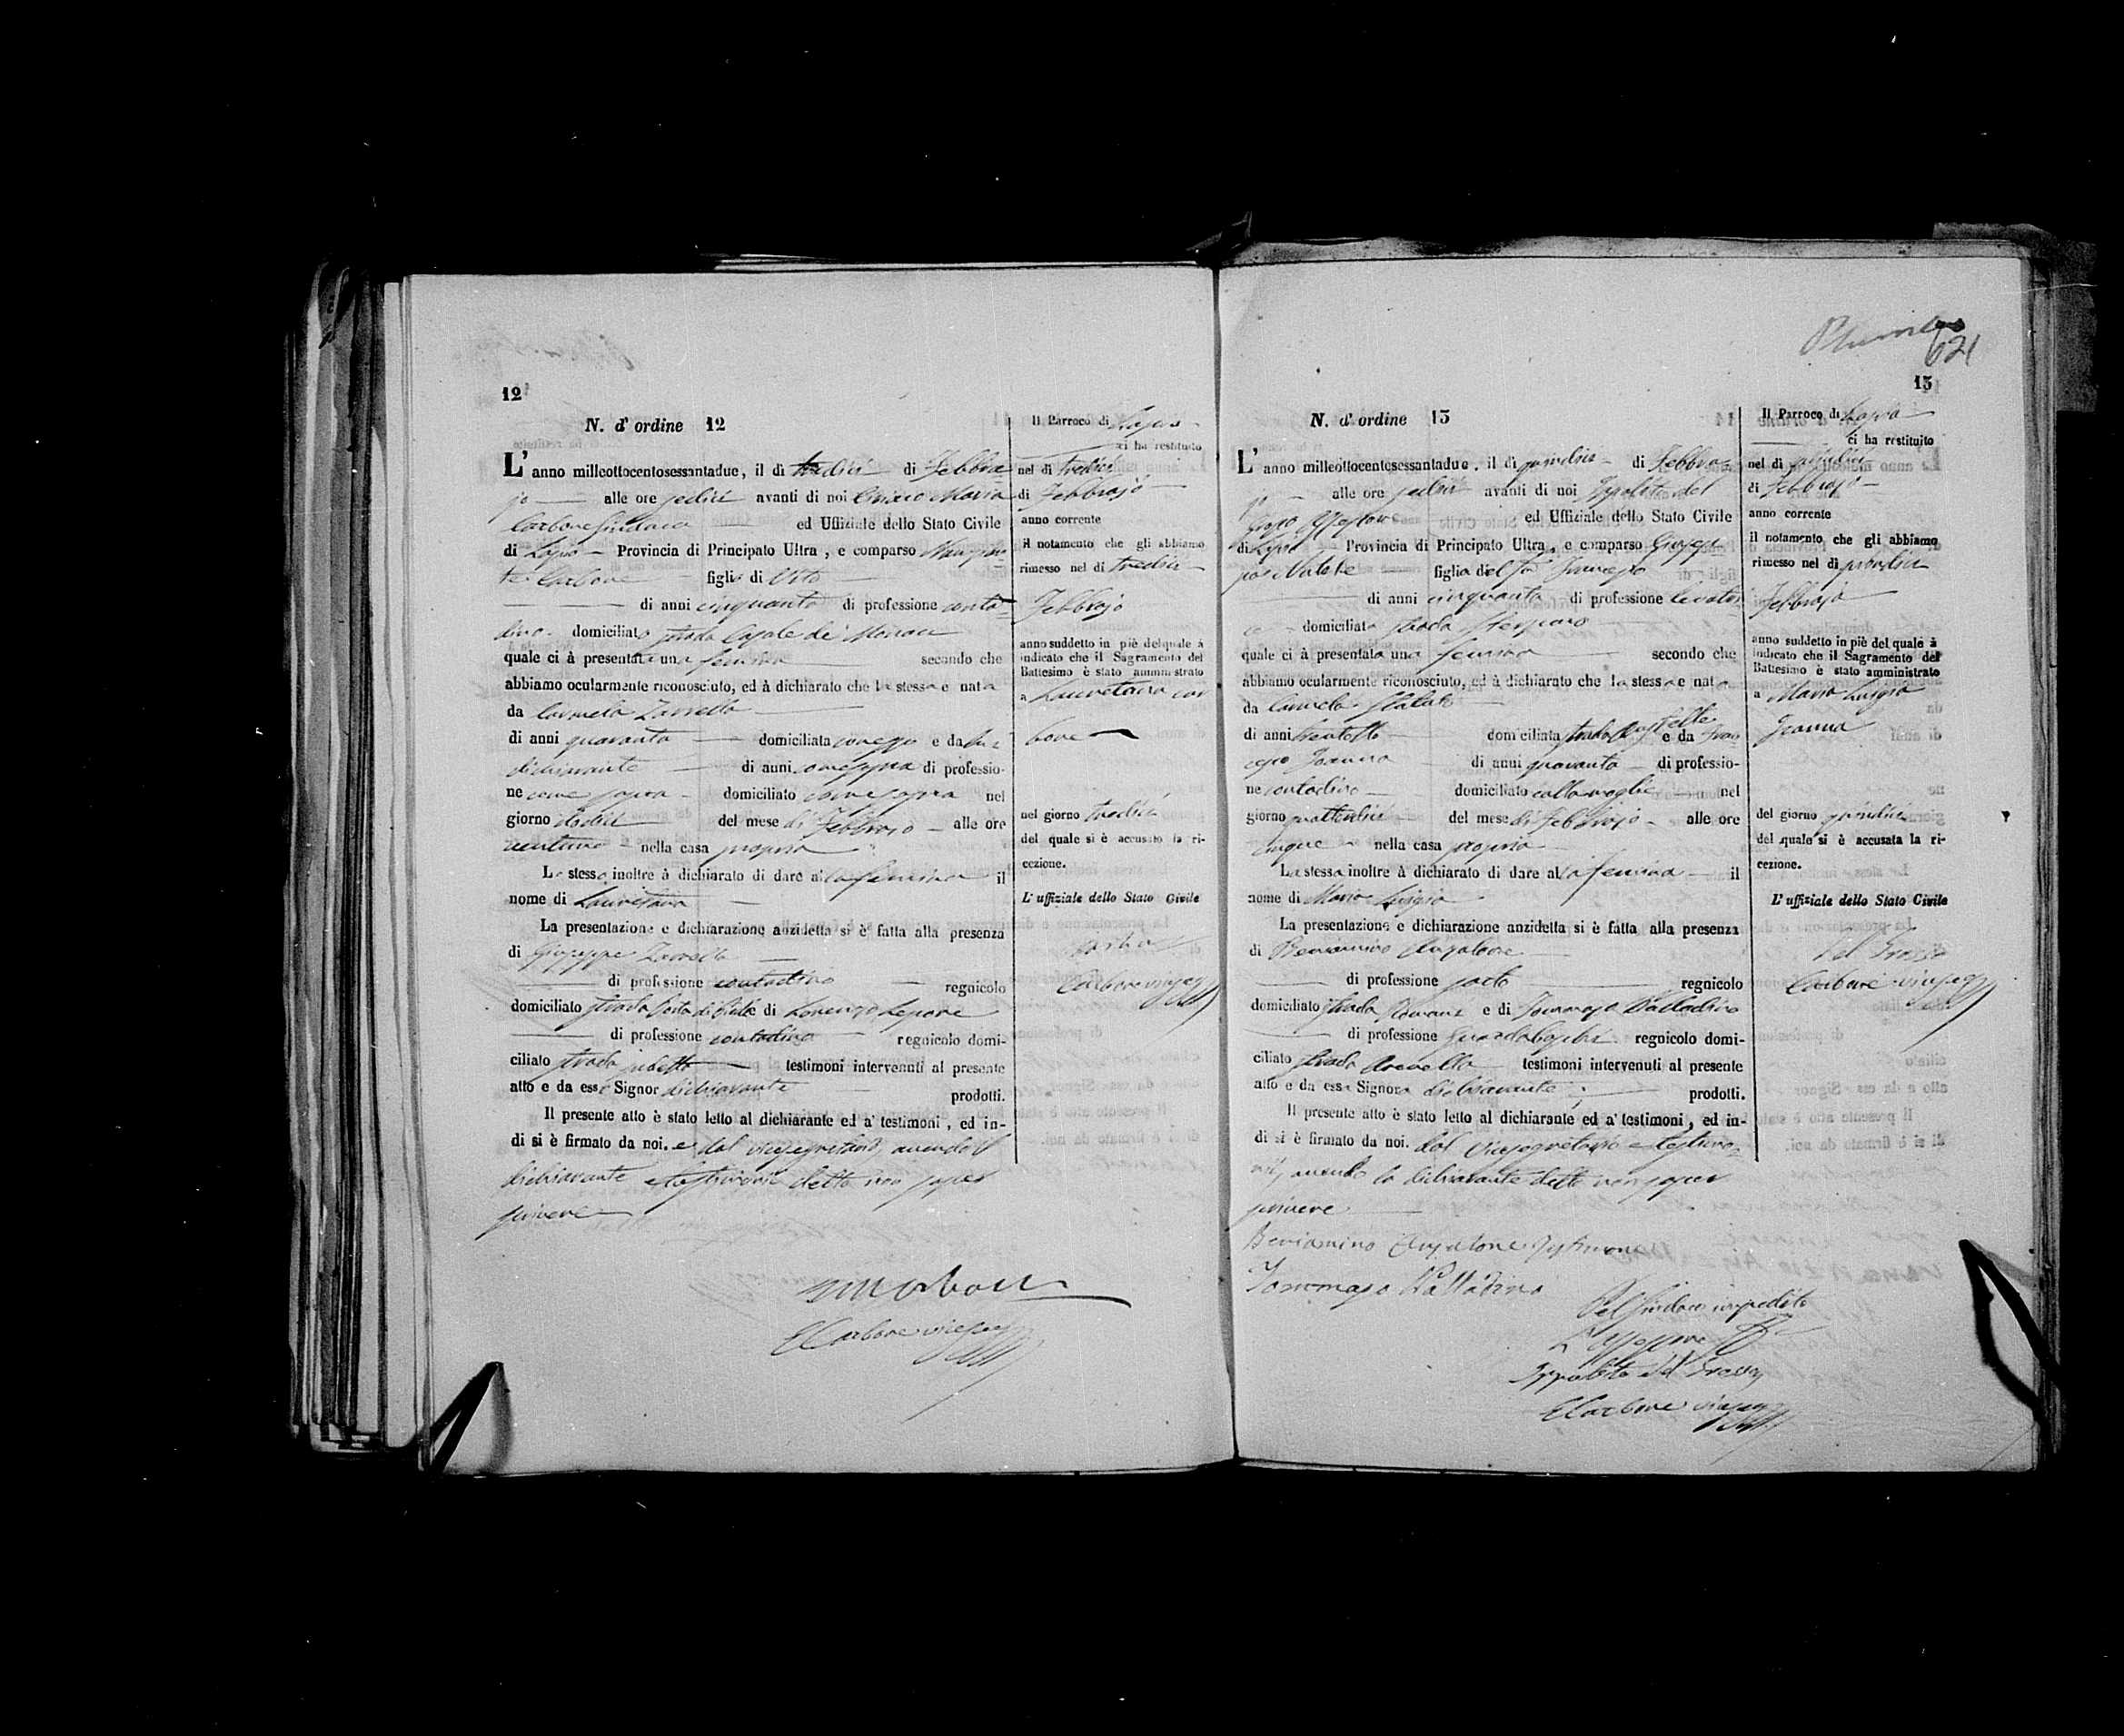 12
N. d' ordine 12
L' anno milleottocentosessantadue, il di tredici di Febbra
jo alle ore sedici avanti di noi Ciriaco Maria
Carbone Sindaco ed Uffiziale dello Stato Civile
di Lapio Provincia di Principato Ultra, e comparso
Carbone figlio di Vito
di anni cinquanta di professione conta
dino domiciliato strada Casale de' Monaci
quale ci à presentata una femina secondo che
abbiamo ocularmente riconosciuto, ed à dichiarato che la stessa e nata
da Carmela Zarrella
di anni quaranta domiciliata e da lui
dichiarante di anni come sopra di professio-
ne come sopra domiciliato come sopra nel
giorno dodici del mese di Febbrajo alle ore
ventuno nella casa propria
Lo stesso inoltre à dichiarato di dare alla femina il
nome di Lauretana
La presentazione e dichiarazione anzidetta si è fatta alla presenza
di Giuseppe Zarrella
di professione contadino regnicolo
domiciliato strada e di Lorenzo Lepore
di professione contadino regnicolo domi-
ciliato strada testimoni intervenuti al presente
atto e da esso Signor dichiarante prodotti.
Il presente atto è stato letto al dichiarante ed a' testimoni, ed in-
di si è firmato da noi, e dal vicesegretario, avendo il
dichiarante e testimoni detto non saper
scrivere
Carbone
E Carbone viceseg
Il Parroco di Lapio
ci ha restituito
nel di tredici
di Febbrajo
anno corrente
il notamento che gli abbiamo
rimesso nel di tredici
Febbrajo
anno suddetto in piè del quale à
indicato che il Sagramento del
Battesimo è stato amministrato
a Lauretana Car
bone
nel giorno tredici
del quale si è accusato la ri-
cezione.
L' uffiziale dello Stato Civile
Carbone viceseg
621
13
N. d' ordine 13
L' anno milleottocentosessantadue, il di quindici di Febbra
jo alle ore sedici avanti di noi Ippolito del
Grosso ed Uffiziale dello Stato Civile
di Lapio Provincia di Principato Ultra, e comparso Giusep
pa figlia del fu
di anni cinquanta di professione levatri
ce domiciliata strada
quale ci à presentata una femina secondo che
abbiamo ocularmente riconosciuto, ed à dichiarato che la stessa e nata
da Carmela
di anni trentotto domiciliata strada e da Fran
cesco Joanna di anni quaranta di professio-
ne contadino domiciliato colla moglie nel
giorno quattordici del mese di Febbrajo alle ore
cinque nella casa propria
La stessa inoltre à dichiarato di dare alla femina il
nome di Maria Luigia
La presentazione e dichiarazione anzidetta si è fatta alla presenza
di Beniamino
di professione sarto regnicolo
domiciliato strada e di Tommaso Palladino
di professione Guardaboschi regnicolo domi-
ciliato strada testimoni intervenuti al presente
atto e da essa Signora dichiarante prodotti.
Il presente atto è stato letto al dichiarante ed a' testimoni, ed in-
di si è firmato da noi, dal vicesegretario e testimo
nii, avendo la dichiarante detto non saper
scrivere
Beniamino testimone
Tommaso Palladino
Pel Sindaco impedito
Ippolito del Grosso
E Carbone viceseg
Il Parroco di Lapio
ci ha restituito
nel di quindici
di Febbrajo
anno corrente
il notamento che gli abbiamo
rimesso nel di quindici
Febbrajo
anno suddetto in piè del quale à
indicato che il Sagramento del
Battesimo è stato amministrato
a Maria Luigia
Joanna
del giorno quindici
del quale si è accusata la ri-
cezione.
L' uffiziale dello Stato Civile
Del Grosso
Carbone viceseg